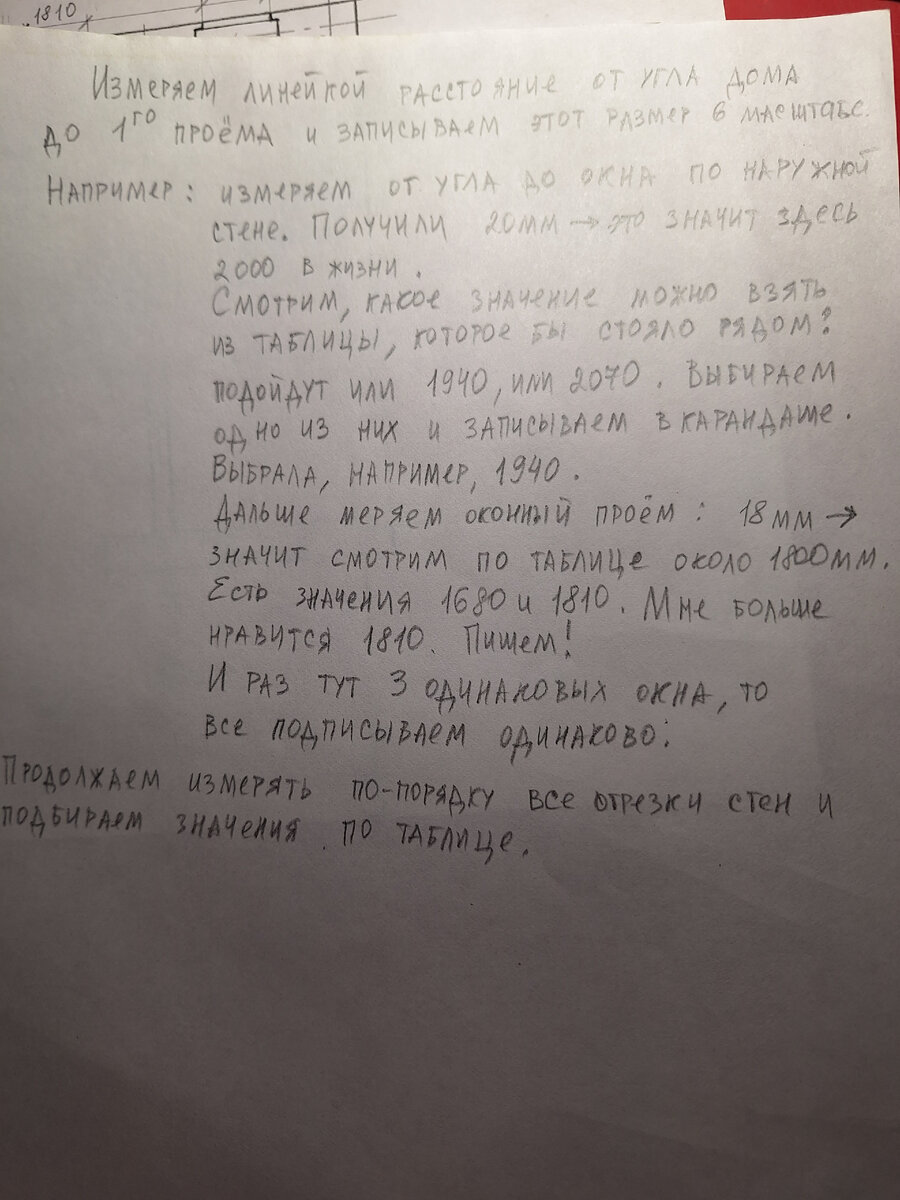 1810
Измеряем линейкой расстояние от угла дома
до 1го проёма и записываем этот размер в масштабе.
Например: измеряем от угла до окна по наружной
стене. Получили 20мм → это значит здесь
2000 в жизни.
Смотрим, какое значение можно взять
из таблицы, которое бы стояло рядом?
подойдут или 1940, или 2070. Выбираем
одно из них и записываем в карандаше.
Выбрала, например, 1940.
Дальше меряем оконный проём: 18мм →
значит смотрим по таблице около 1800мм.
Есть значения 1680 и 1810. Мне больше
нравится 1810. Пишем!
И раз тут 3 одинаковых окна, то
все подписываем одинаково.
Продолжаем измерять по-порядку все отрезки стен и
подбираем значения по таблице.